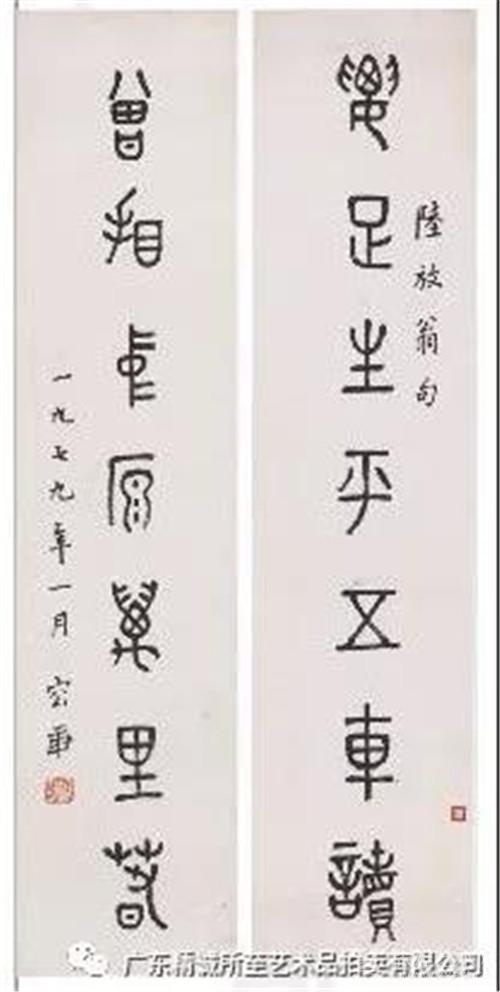 足生平五車讀
陸放翁句
曾相萬里春
一九七九年一月 容庚
广东精诚所至艺术品拍卖有限公司